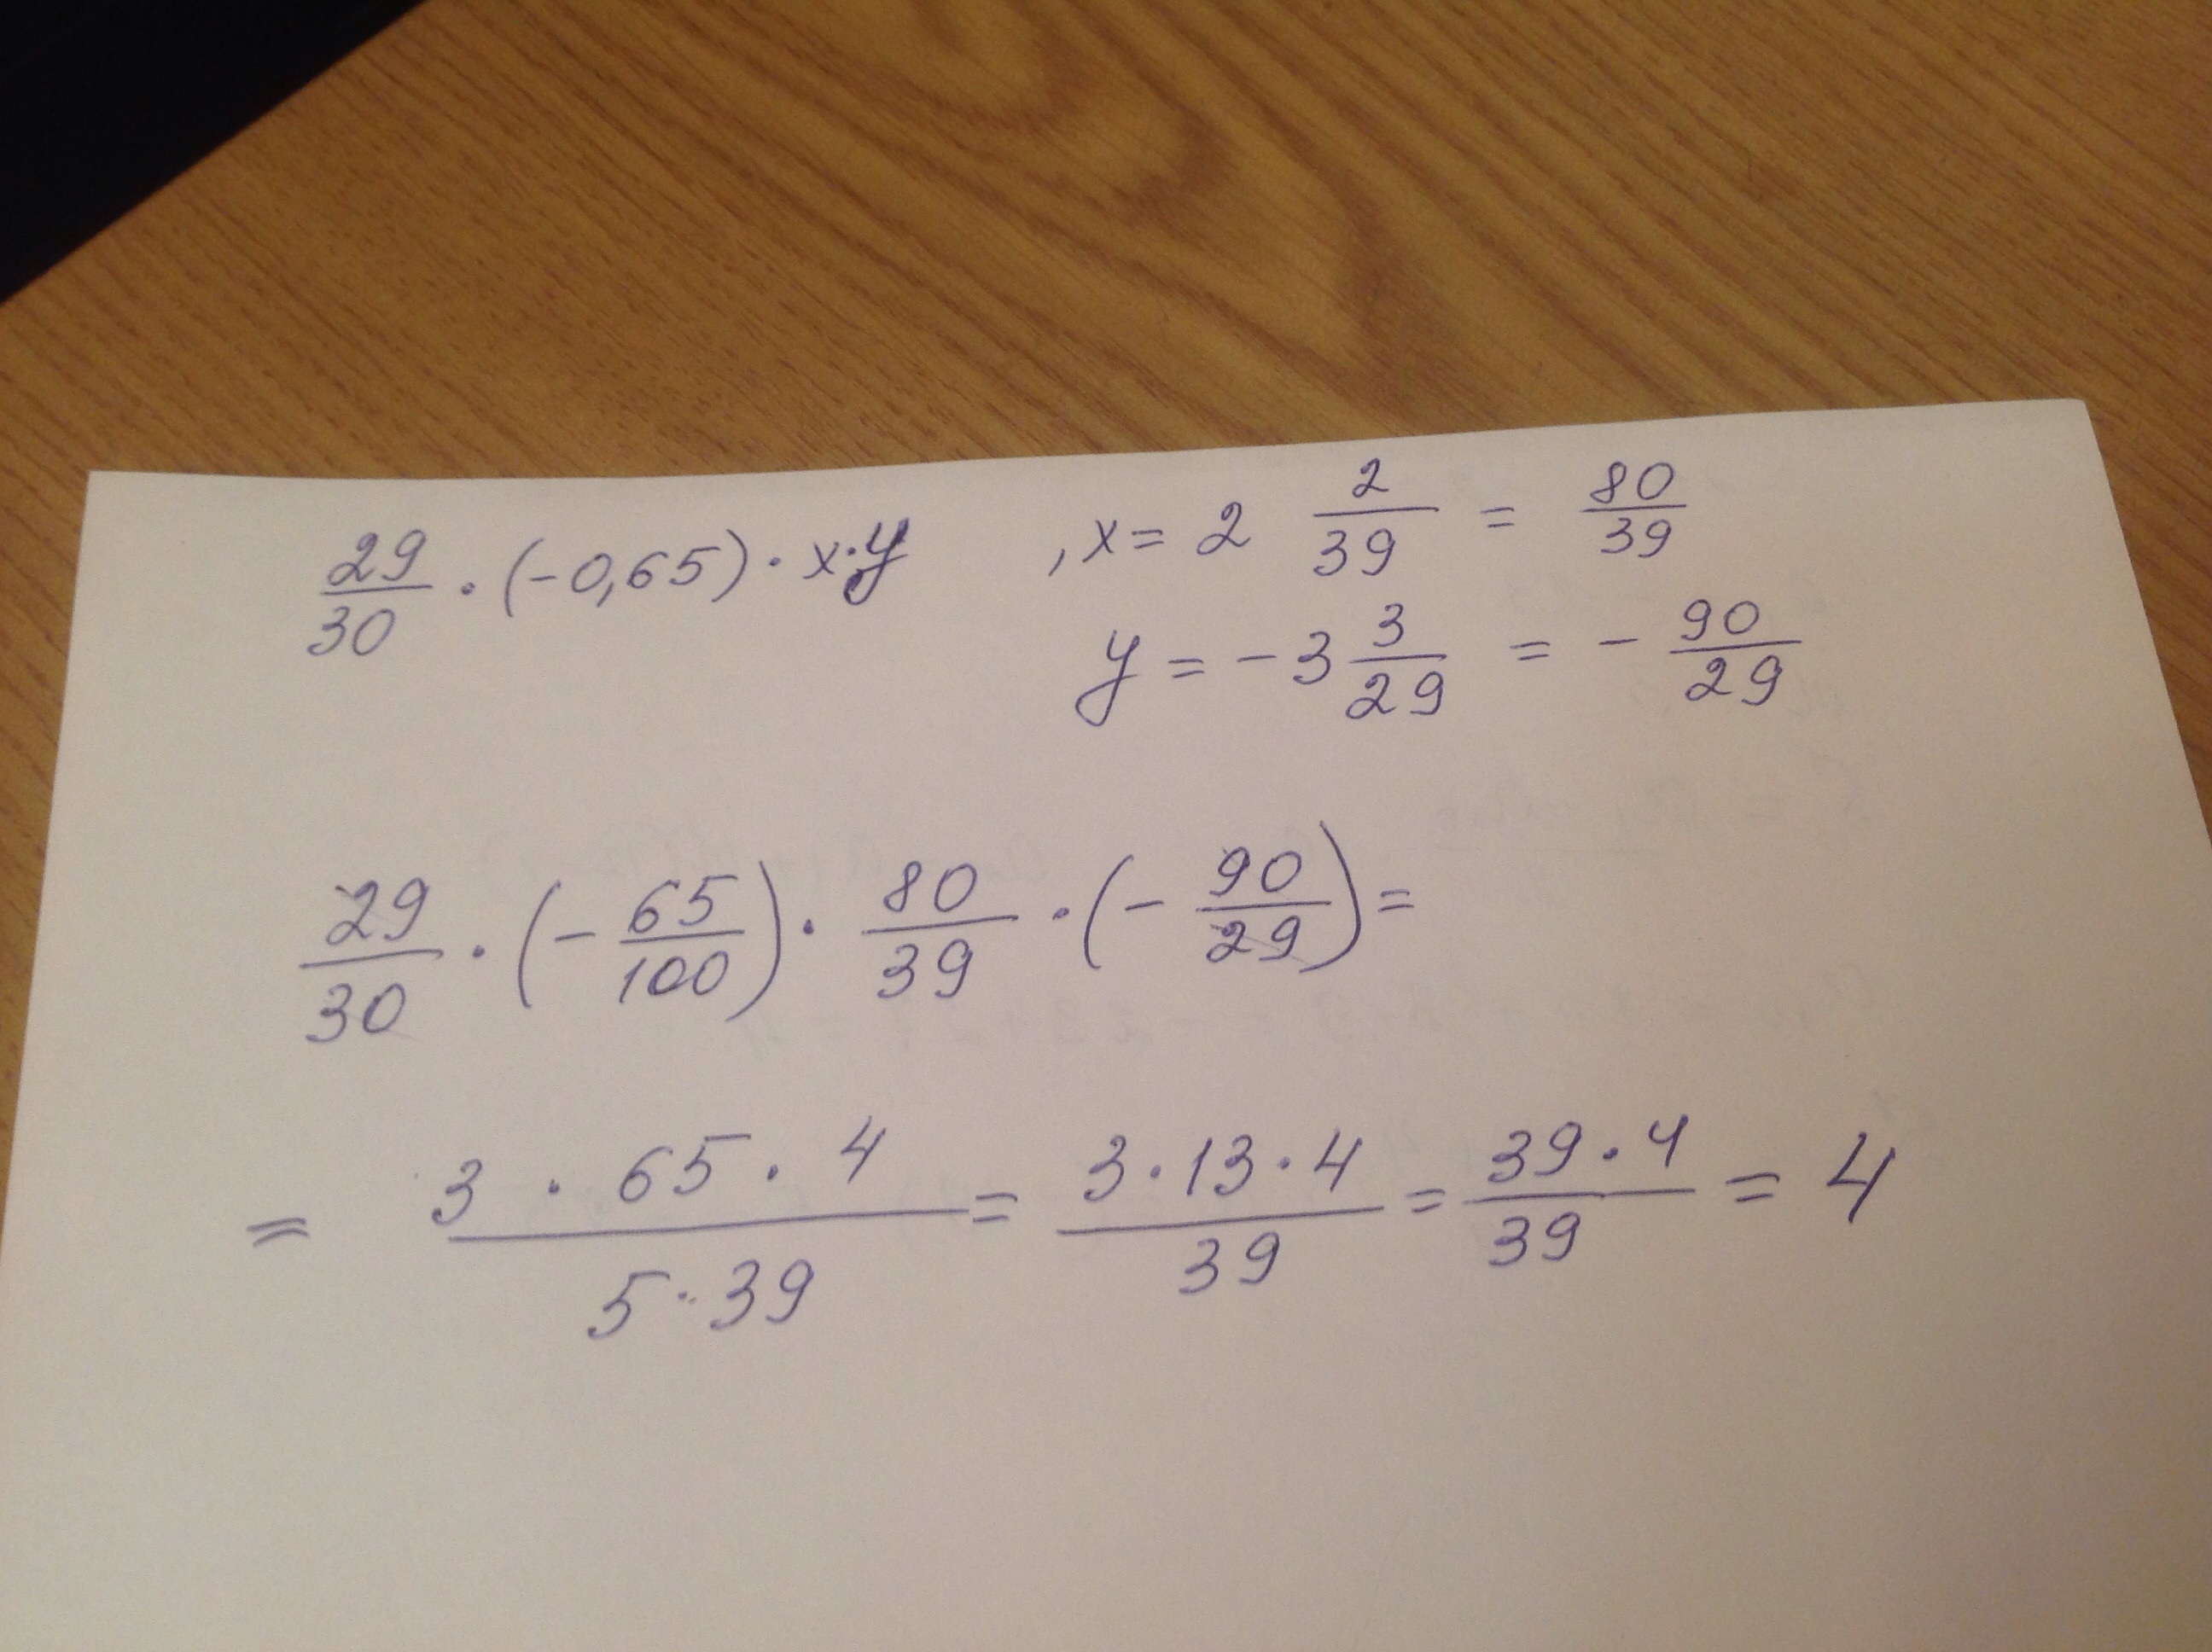 29/30 · (-0,65) · x·y , x = 2 2/39 = 80/39
y = -3 3/29 = - 90/29
29/30 · (- 65/100) · 80/39 · (- 90/29) =
= 3 · 65 · 4 / 5 · 39 = 3 · 13 · 4 / 39 = 39 · 4 / 39 = 4